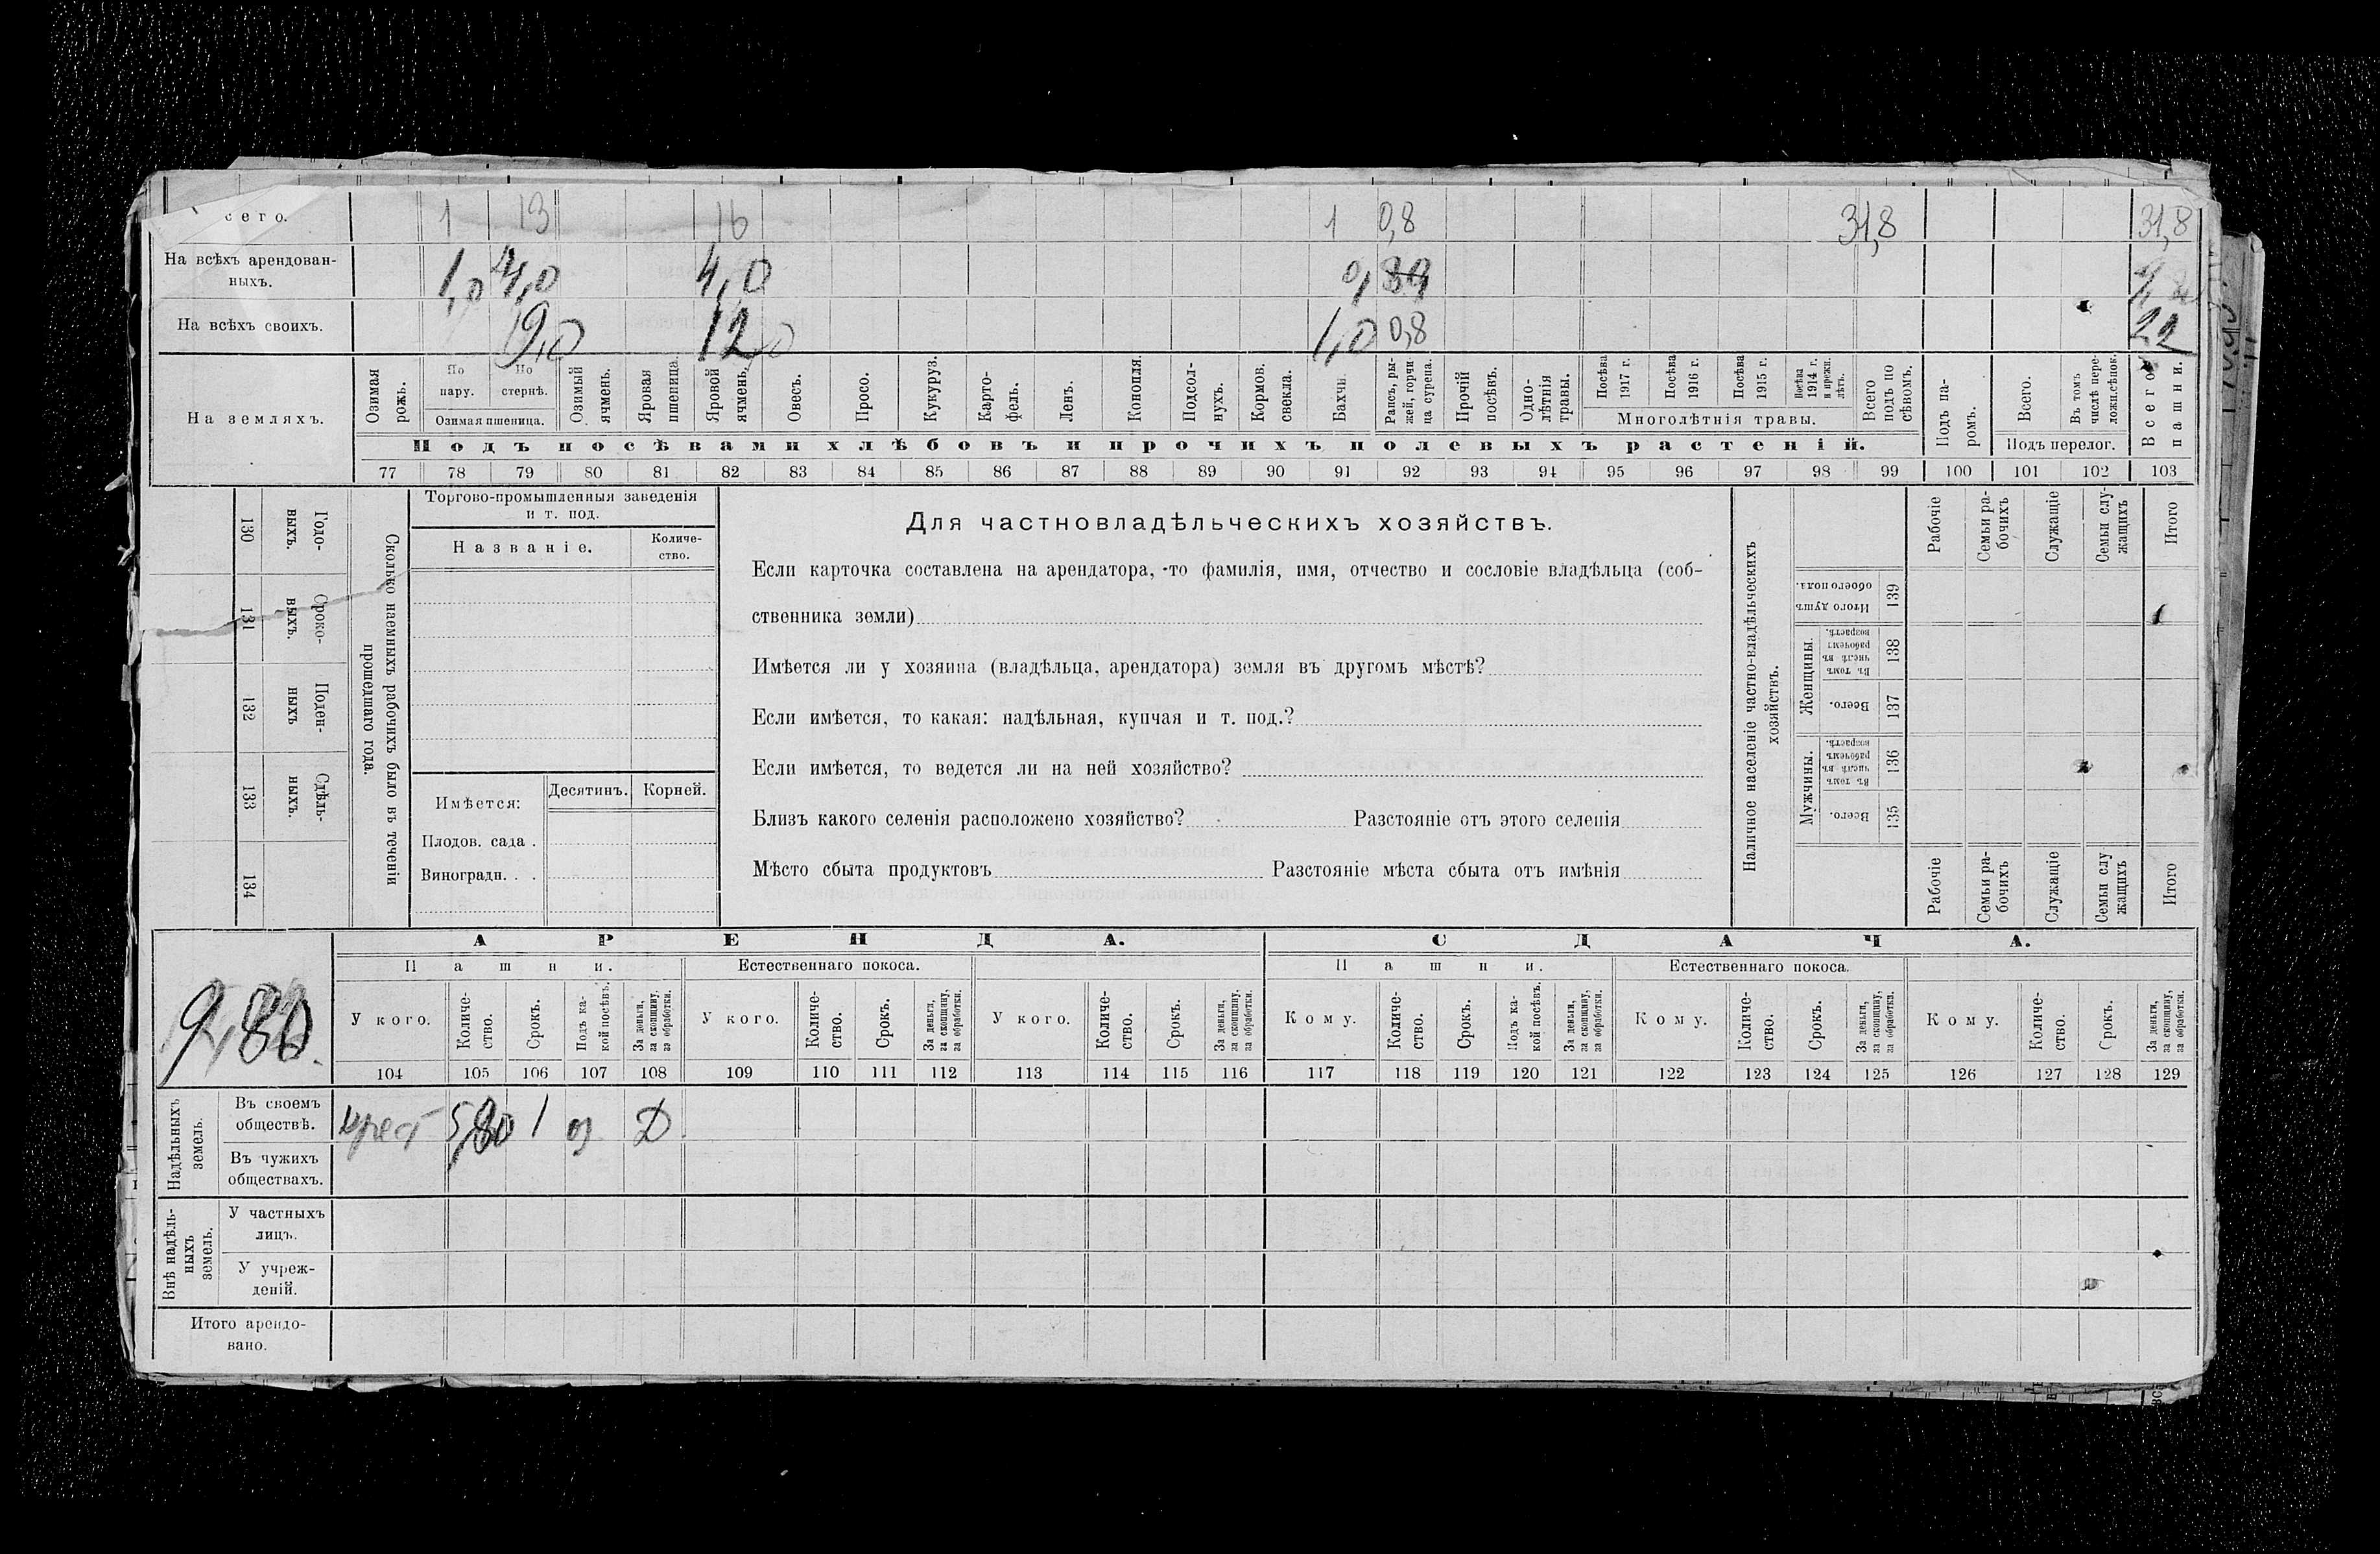 сего. 1 13 16 1 0,8 31,8 31,8
На всѣхъ арендован-
ныхъ. 1,0 4,0 4,0
На всѣхъ своихъ. 9,0 12,0 1,0 0,8 22
На земляхъ.
Озимая рожь.
По пару.
По стернѣ.
Озимая пшеница.
Озимый ячмень.
Яровая пшеница.
Яровой ячмень.
Овесъ.
Просо.
Кукуруз.
Карто-
фель.
Ленъ.
Конопля.
Подсол-
нухъ.
Кормов. свекла.
Бахчи.
Рапсъ, ры-
жей, горчи
ца сурепа.
Прочій посѣвъ.
Одно-
лѣтнія
травы.
Посѣва 1917 г.
Посѣва 1916 г.
Посѣва 1915 г.
Посѣва 1914 г. и прежн. лѣтъ.
Многолѣтнія травы.
Всего подъ по сѣвомъ.
Подъ посѣвами хлѣбовъ и прочихъ полевыхъ растеній.
Подъ па-
ромъ.
Всего.
Въ томъ числѣ пере-
ложн.сѣнок.
Подъ перелог.
Всего пашни.
77 78 79 80 81 82 83 84 85 86 87 88 89 90 91 92 93 94 95 96 97 98 99 100 101 102 103
130 131 132 133 134
Годо-
выхъ.
Сроко-
выхъ.
Поден-
ныхъ
Сдѣль-
ныхъ.
Сколько наемныхъ рабочихъ было въ теченіи
прошедшаго года.
Торгово-промышленныя заведенія
и т. под.
Названіе.
Количе-
ство.
Имѣется: Десятинъ. Корней.
Плодов. сада .
Виноградн. . .
Для частновладѣльческихъ хозяйствъ.
Если карточка составлена на арендатора, то фамилія, имя, отчество и сословіе владѣльца (соб-
ственника земли)
Имѣется ли у хозяина (владѣльца, арендатора) земля въ другомъ мѣстѣ?
Если имѣется, то какая: надѣльная, купчая и т. под.?
Если имѣется, то ведется ли на ней хозяйство?
Близъ какого селенія расположено хозяйство? Разстояніе отъ этого селенія
Мѣсто сбыта продуктовъ Разстояніе мѣста сбыта отъ имѣнія
Наличное населеніе частно-владѣльческихъ
хозяйствъ.
Рабочіе
Семьи ра-
бочихъ
Служащіе
Семьи слу-
жащихъ
Итого
Итого душъ обоего пола. 139
Женщины.
Въ томъ числѣ въ рабочемъ возрастѣ. 138
Всего. 137
Мужчины.
Въ томъ числѣ въ рабочемъ возрастѣ. 136
Всего. 135
Рабочіе
Семьи ра-
бочихъ
Служащіе
Семьи слу
жащихъ
Итого
9,80
АРЕНДА. СДАЧА.
Пашни. Естественнаго покоса. Пашни. Естественнаго покоса.
У кого. Количе-
ство. Срокъ. Подъ ка-
кой посѣвъ. За деньги,
за скопщину,
за обработки.
У кого. Количе-
ство. Срокъ. За деньги,
за скопщину,
за обработки.
У кого. Количе-
ство. Срокъ. За деньги,
за скопщину,
за обработки.
Кому. Количе-
ство. Срокъ. Подъ ка-
кой посѣвъ. За деньги,
за скопщину,
за обработки.
Кому. Количе-
ство. Срокъ. За деньги,
за скопщину,
за обработки.
Кому. Количе-
ство. Срокъ. За деньги,
за скопщину,
за обработки.
104 105 106 107 108 109 110 111 112 113 114 115 116 117 118 119 120 121 122 123 124 125 126 127 128 129
Надѣльныхъ
земель.
Въ своемъ
обществѣ. 5,80 1 оз Д
Въ чужихъ
обществахъ.
Внѣ надѣль-
ныхъ
земель.
У частныхъ
лицъ.
У учреж-
деній.
Итого арендо-
вано.